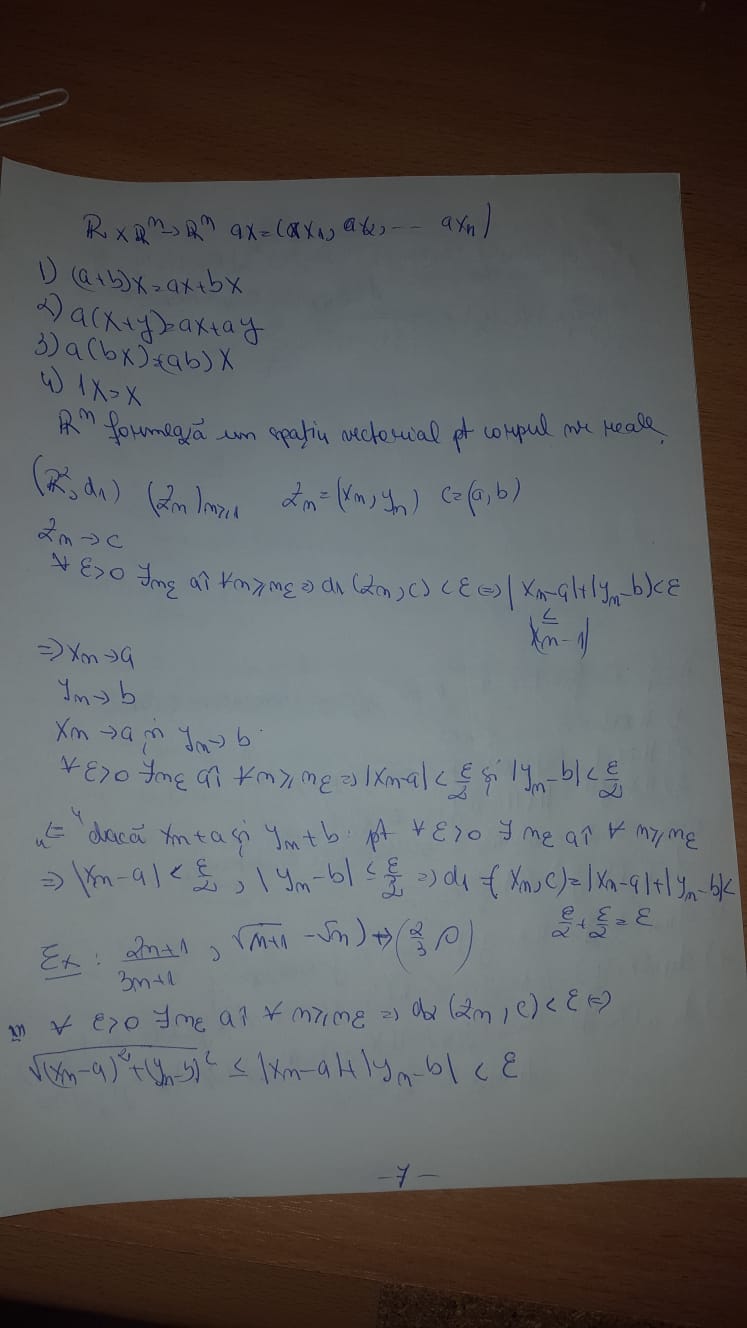 R x R^n → R^n ax = (ax1, ax2, --- axn)
1) (a+b)x = ax+bx
2) a(x+y) = ax+ay
3) a(bx) = (ab)x
4) 1x = x
R^n formează un spațiu vectorial pt corpul nr reale.
(R², d1) (zn)n≥1 zn = (xn, yn) c = (a, b)
zn → c
∀ ε>0 ∃nε aî ∀n≥nε => d1 (zn, c) < ε <=> |xn-a|+|yn-b| < ε
≤
|xn-1|
=> xn → a
yn → b
xn → a și yn → b
∀ ε>0 ∃nε aî ∀n≥nε => |xn-a| < ε/2 și |yn-b| < ε/2
"<=" dacă xn→a și yn→b. pt ∀ ε>0 ∃ nε aî ∀ n≥nε
=> |xn-a| < ε/2, |yn-b| ≤ ε/2 => d1 (xn, c) = |xn-a|+|yn-b| <
ε/2 + ε/2 = ε
Ex: 2n+1/3n+1, √n+1 - √n) → (2/3, 0)
∀ ε>0 ∃nε aî ∀ n≥nε => d2 (zn, c) < ε <=>
√(xn-a)²+(yn-b)² ≤ |xn-a|+|yn-b| < ε
-7-